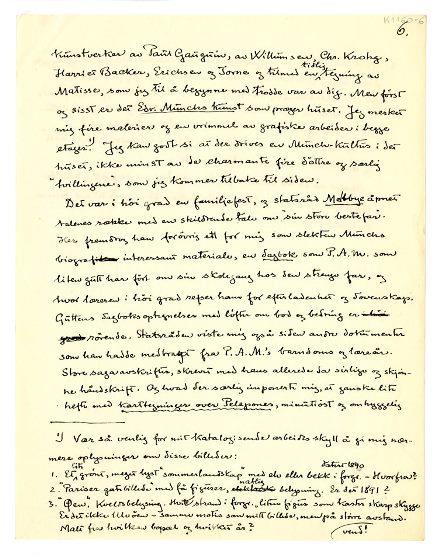 K1160-6
6.
kunstverker av Paul Gauguin, av Willumsen, Chr. Krohg,
Harriet Backer, Erichsen og Torne og tilmed en tidlig tegning av
Matisse, som jeg til å begynne med trodde var av dig. Men først
og sisst er det Edv. Munchs kunst som præger huset. Jeg merket
mig fire malerier og en vrimmel av grafiske arbeider i begge
etager.¹) Jeg kan godt si at der drives en Munch-kultus i det
huset, ikke minst av de charmante fire døttre og særlig
"tvillingene", som jeg kommer tilbake til siden.
Det var i höi grad en familjefest, og statsråd Mobbye åpnet
talenes række med en skildrende tale om sin store bestefar.
Her fremdrog han forövrig ett for mig som slekten Munchs
biograf interessant materiale, en dagbok som P.A.M. som
liten gutt har fört om sin skolegang hos den strenge far, og
hvor læreren i höi grad refser ham for efterladenhet og dovenskap.
Guttens dagboksoptegnelser med löfter om bod og bedring er
rörende. Statsråden viste mig også siden andre dokumenter
som han hadde medbragt fra P.A.M.'s barndoms og læreår.
Store sagaavskrifter, skrevet med hans allerede da sirlige og skjön-
ne håndskrift. Og hvad der særlig imponerte mig, et ganske lite
hefte med karttegninger over Pelepones, minutiöst og omhyggelig
¹) Vær så venlig for mitt katalogisende arbeides skyll å gi mig nær-
mere oplysninger om disse billeder:
1. Et lite, grönt, meget lyst "sommerlandskap" med elv eller bekk i forgr. datert 1890 – Hvorfra?
2. "Pariser gatebillede" med få figurer, natlig belysning. Er det 1891?
3. "Öen", Kveldsbelysning. Hvit strand i forgr., liten figur som kaster skarp skygge
Er det ikke samme motiv som mitt billede, men på större avstand.
Malt fra hvilken bopæl og hvilket år?
vend!